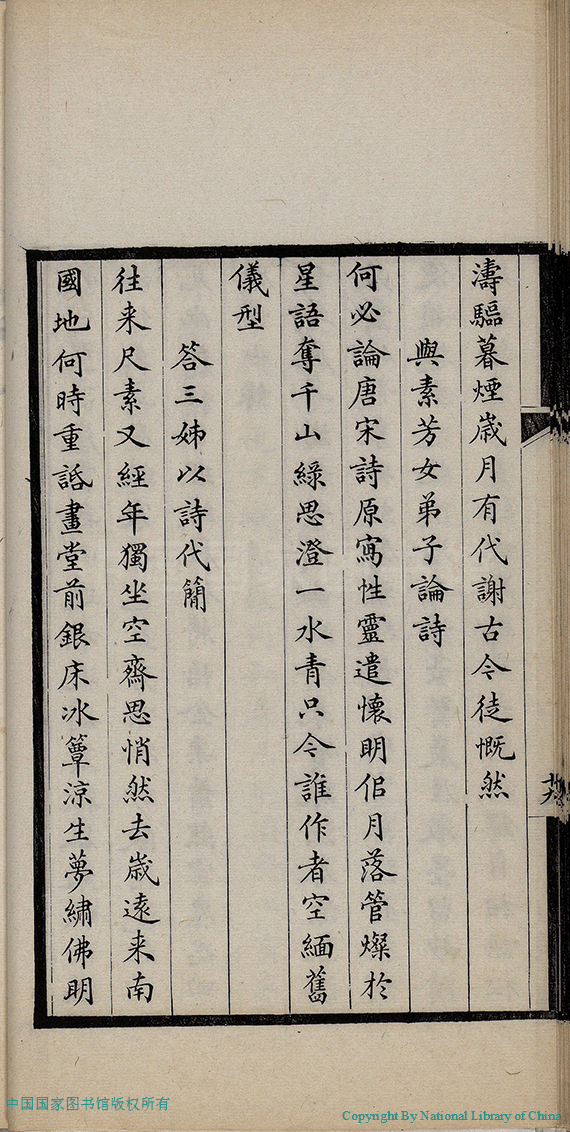 濤驅暮煙歲月有代謝古今徒慨然
與素芳女弟子論詩
何必論唐宋詩原寫性靈遣懷明佀月落管燦於
星語奪千山綠思澄一水青只今誰作者空緬舊
儀型
答三姊以詩代簡
往来尺素又經年獨坐空齋思悄然去歲遠来南
國地何時重話畫堂前銀床冰簟涼生夢繡佛明
中国国家图书馆版权所有
Copyright By National Library of China